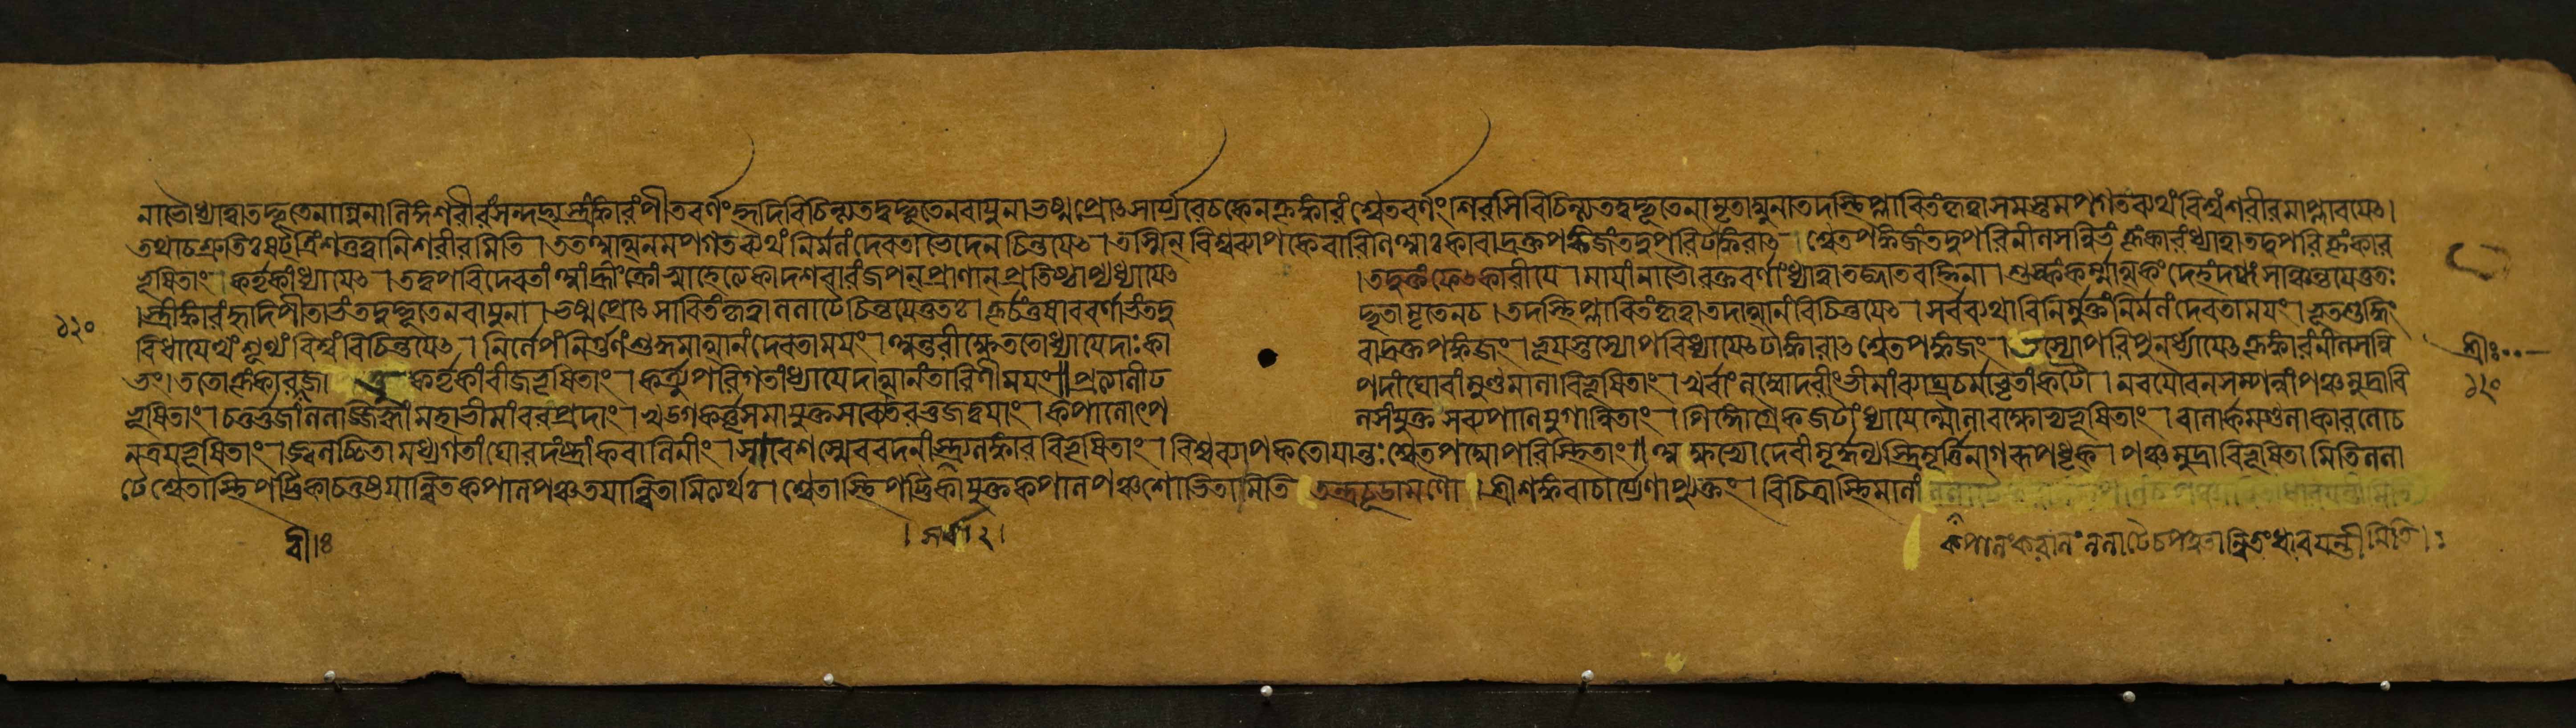 নাভৌধ্যাত্বাতদ্ভূতেনাগ্নিনালিঙ্গশরীরংসন্দহ্যস্ত্রীংকারংপীতবর্ণংহৃদিবিচিন্ত্যতদুদ্ভূতেনবায়ুনাভস্মপ্রোৎসার্য্যরেচকেনহূংকারংশ্বেতবর্ণংশিরসিবিচিন্ত্যতদুদ্ভূতেনামৃতাম্বুনাতদস্থিপ্লাবিতংকৃত্বাসমস্তমপগতব্যথংবিশ্বংশরীরমাপ্লাবয়েৎ।
তথাচশ্রুতিঃষট্ত্রিংশতত্ত্বানিশরীরমিতি। ততআত্মানমপগতব্যথংনির্মলংদেবতাভেদেনচিন্তয়েৎ। তস্মিন্ বিশ্বব্যাপকেবারিণিআঃকারাদ্রক্তপঙ্কজংতদুপরিটাংকারাৎ শ্বেতপঙ্কজংতদুপরিনীলসন্নিভংহূংকারংধ্যাত্বাতদুপরিহূংকার
ভূষিতাং। কর্তৃকাংধ্যায়েৎ। তদুপরিদেবতাংআংহ্রীংক্রোঁস্বাহেত্যেকাদশবারংজপন্ প্রাণান্ প্রতিষ্ঠাপ্যধ্যায়েৎ ।তদুক্তংফেৎকারীয়ে। মায়াংনাভৌরক্তবর্ণাংধ্যাত্বাতজ্জাতবহ্নিনা। শুষ্কংকর্ম্মাত্মকংদেহংদগ্ধংসঞ্চিন্তয়েত্ততঃ
।স্ত্রীংকারংহৃদিপীতাভংতদুদ্ভূতেনবায়ুনা। ভস্মপ্রোৎসারিতংকৃত্বাললাটেচিন্তয়েত্ততঃ। তুষারবর্ণাভংতদু দ্ভূতামৃতেনচ। তদস্থিপ্লাবিতংকৃত্বাতদাত্মানংবিচিন্তয়েৎ। সর্বব্যথাবিনির্মুক্তংনির্মলংদেবতাময়ং। ভূতশুদ্ধিং
বিধায়েত্থংশূন্যংবিশ্বংবিচিন্তয়েৎ। নির্লেপংনির্গুণংশুদ্ধমাত্মানংদেবতাময়ং। অন্তরীক্ষেততোধ্যায়েদাঃকা রাদ্রক্তপঙ্কজং। ভূয়স্তস্যোপরিধ্যায়েৎটাঙ্কারাৎশ্বেতপঙ্কজং। তস্যোপরিপুনর্ধ্যায়েৎহূঙ্কারংনীলসন্নি
ভং। ততোহূংকার কর্তৃকাংবীজভূষিতাং। কর্ত্র্যুপরিগতাংধ্যায়েদাত্মানংতারিণীময়ং॥প্রত্যালীঢ পদাংঘোরাংমুণ্ডমালাবিভূষিতাং। খর্বাংলম্বোদরীংভীমাংব্যাঘ্রচর্মাবৃতাংকটৌ। নবযৌবনসম্পন্নাংপঞ্চমুদ্রাবি
ভূষিতাং। চতুর্ভুজাংললজ্জিহ্বাংমহাভীমাংবরপ্রদাং। খড্গকর্তৃসমাযুক্তসব্যেতরভুজদ্বয়াং। কপালোৎপ লসংযুক্তসব্যপাণিযুগান্বিতাং। পিঙ্গোগ্রৈকজটাংধ্যায়েন্মৌলাবক্ষোভ্যভূষিতাং। বালার্কমণ্ডলাকারলোচ
নত্রয়ভূষিতাং। জ্বলচ্চিতামধ্যগতাংঘোরদংষ্ট্রাংকরালিনীং। সাবেশস্মেরবদনাংস্ত্র্যলঙ্কারবিভূষিতাং। বিশ্বব্যাপকতোয়ান্তঃশ্বেতপদ্মোপরিস্থিতাং॥ অক্ষোভ্যোদেবীমূর্দ্ধন্যস্ত্রিমূর্ত্তির্নাগরূপধৃক্। পঞ্চমুদ্রাবিভূষিতামিতিললা
টেশ্বেতাস্থিপট্টিকাচতুষ্টয়ান্বিতকপালপঞ্চতয়ান্বিতামিত্যর্থঃ। শ্বেতাস্থিপট্টিকাযুক্তকপালপঞ্চশোভিতামিতি তন্ত্রচূডামণৌ ।শ্রীশঙ্করাচার্য্যেণাপ্যুক্তং। বিচিত্রাস্থিমালাং
১২০
শ্রীঃ
১২০
কপালংকরালংললাটেচপঞ্চান্বিতংধারয়ন্তীমিতি।